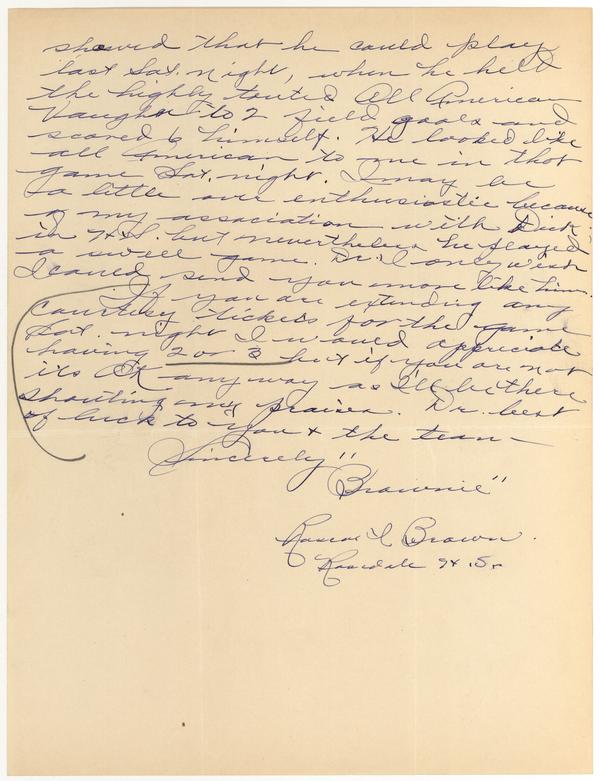 showed that he could play
last Sat. night, when he held
the highly touted All American
Vaughn to 2 field goals and
scored 6 himself. He looked like
all American to me in that
game Sat. night. I may be
a little over enthusiastic because
of my association with Dick
in H.S. but nevertheless he played
a swell game. Dr. I only wish
I could send you more like him.
If you are extending any
courtesy tickets for the game
Sat. night I would appreciate
having 2 or 3 but if you are not
its OK anyway as I'll be there
shouting my praises. Dr. best
of luck to you & the team—
Sincerely"
Brownie"
Roscoe L Brown.
Rosedale H.S.